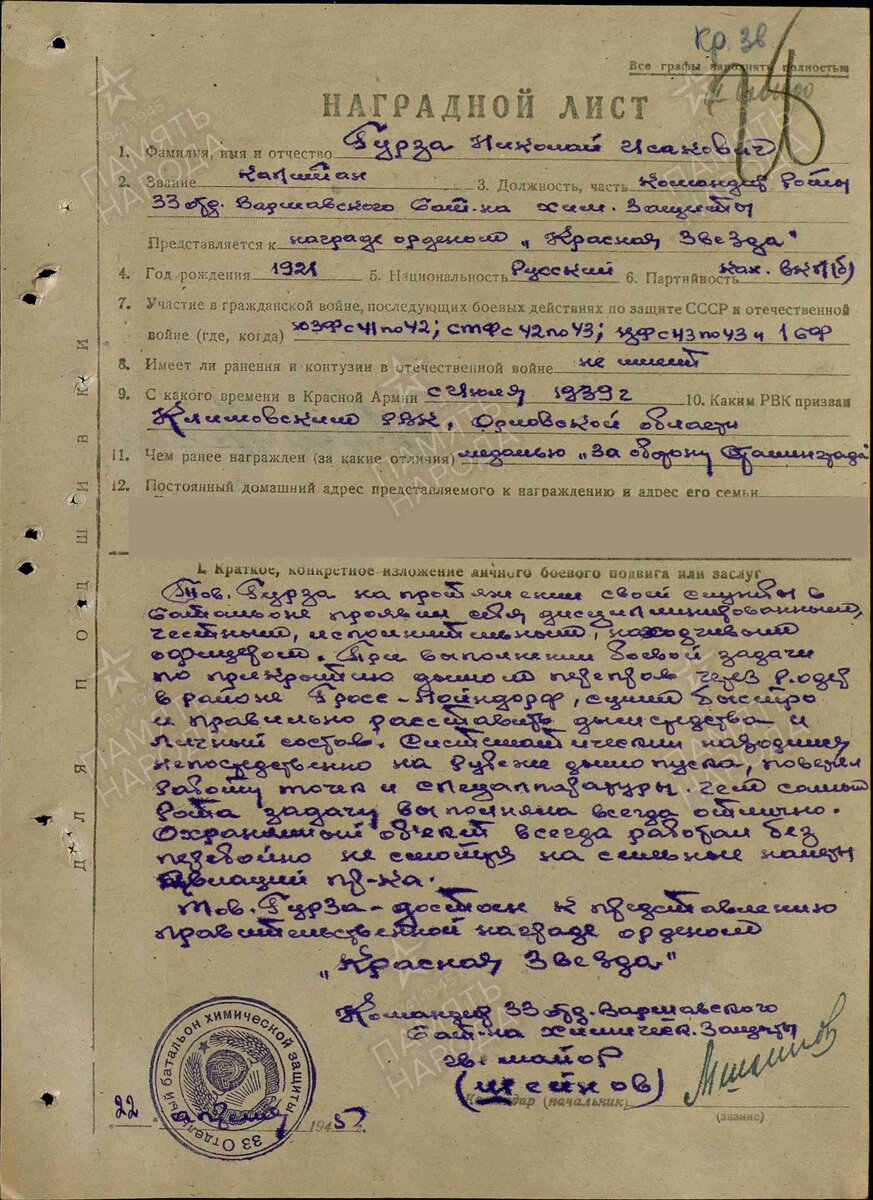 Кр. Зв.
Все графы заполнять полностью
НАГРАДНОЙ ЛИСТ
1. Фамилия, имя и отчество Гурза Николай Исакович
2. Звание капитан 3. Должность, часть командир роты
33 отд. Варшавского бат-на хим. защиты
Представляется к награде орденом „Красная Звезда"
4. Год рождения 1921 5. Национальность Русский 6. Партийность кан. ВКП(б)
7. Участие в гражданской войне, последующих боевых действиях по защите СССР и отечественной
войне (где, когда) ЮЗФ с 41 по 42; СТФ с 42 по 43; ЦФ с 43 по 43 и 1 БФ
8. Имеет ли ранения и контузии в отечественной войне не имеет
9. С какого времени в Красной Армии с июля 1939 г 10. Каким РВК призван
Климовским РВК, Орловской области
11. Чем ранее награжден (за какие отличия) медалью „За оборону Сталинграда"
12. Постоянный домашний адрес представляемого к награждению и адрес его семьи
I. Краткое, конкретное изложение личного боевого подвига или заслуг
Тов. Гурза на протяжении свой службы в
батальоне проявил себя дисциплинированным,
честным, исполнительным, находчивым
офицером. При выполнении боевой задачи
по прикрытию дымом переправ через р. Одер
в районе Гросс-Нойндорф, сумел быстро
и правильно расставить дымсредства и
личный состав. Систематически находился
непосредственно на рубеже дымопуска, поверял
работу точек и спецаппаратуры. Чем самым
рота задачу выполняла всегда отлично.
Охраняемый объект всегда работал без
перебойно не смотря на сильные налеты
авиации пр-ка.
Тов. Гурза - достоин к представлению
правительственной награде орденом
„Красная Звезда"
Командир 33 отд. Варшавского
бат-на химическ. защиты
гв. майор
(Шейнов)
Командир (начальник)
(звание)
33 Отдельный батальон химической защиты
22 апреля 1945 г.
ДЛЯ ПОДШИВКИ
ПАМЯТЬ НАРОДА
1941-1945